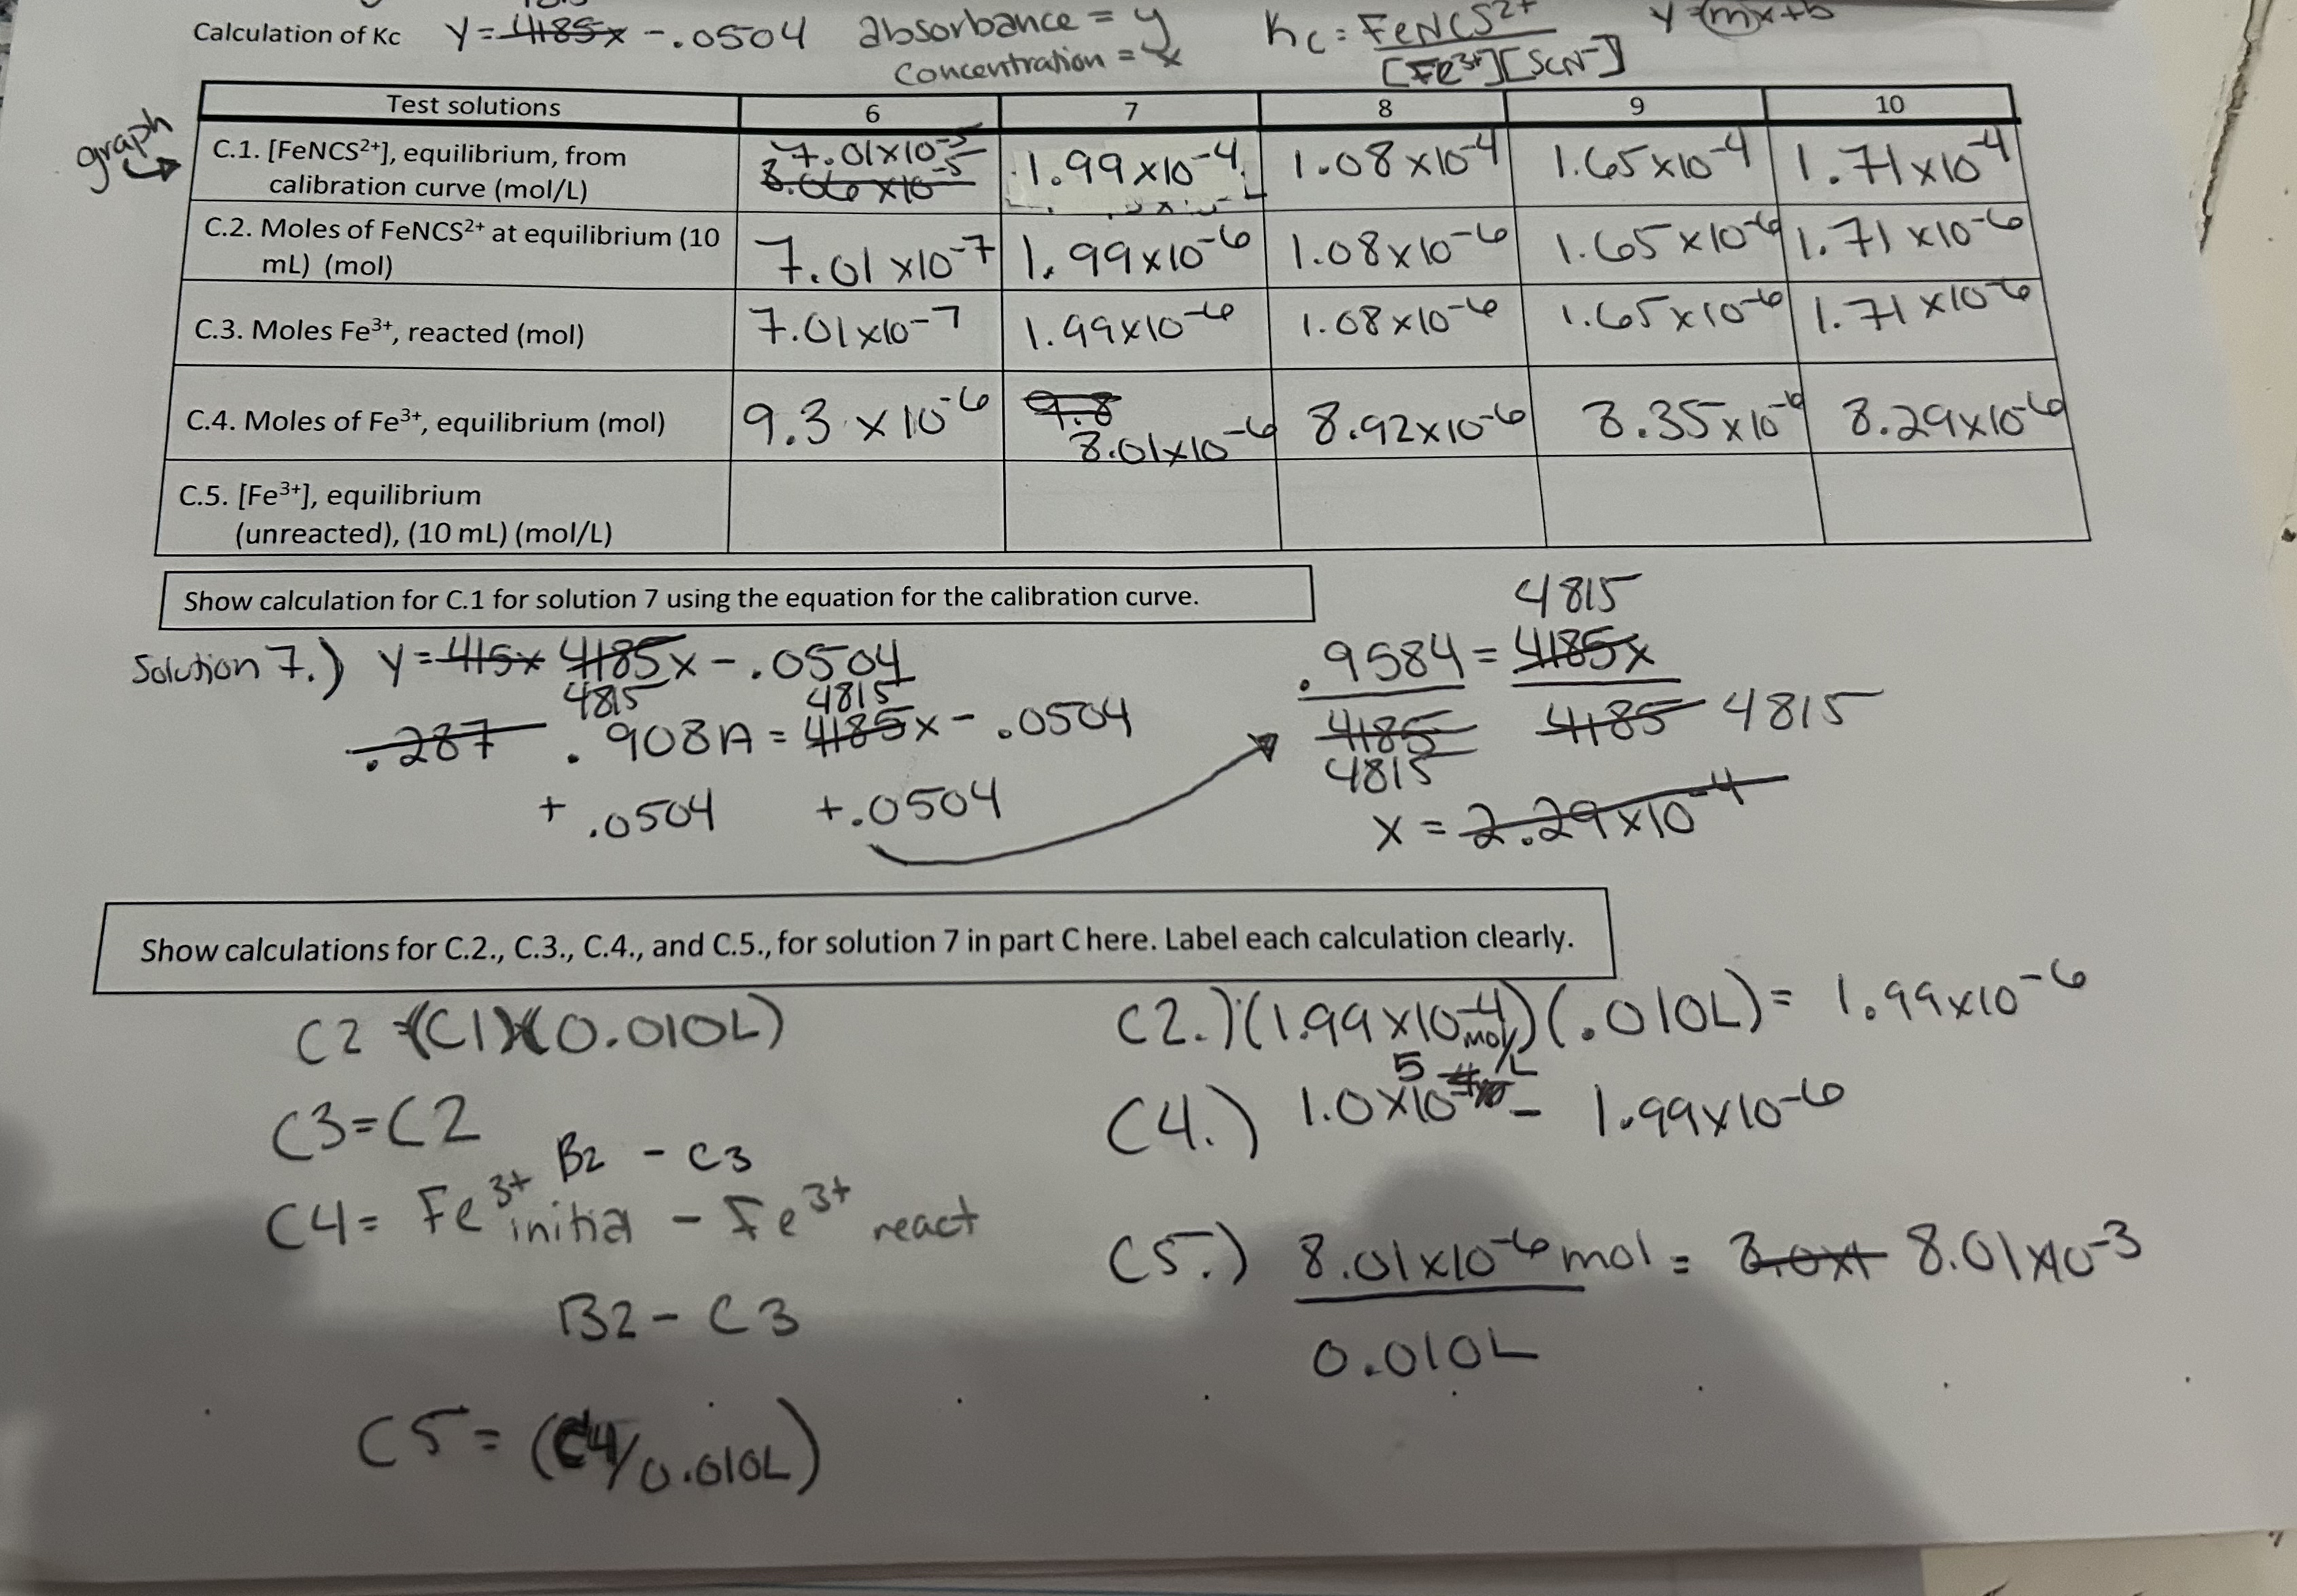 Calculation of Kc y=4185x -.0504 absorbance = y Kc = FeNCS²⁺ y=mx+b
concentration = x [Fe³⁺][SCN⁻]
graph
Test solutions 6 7 8 9 10
C.1. [FeNCS²⁺], equilibrium, from 7.01x10⁻⁵ 1.99x10⁻⁴ 1.08x10⁻⁴ 1.65x10⁻⁴ 1.71x10⁻⁴
calibration curve (mol/L) 8.06x10⁻⁵
C.2. Moles of FeNCS²⁺ at equilibrium (10 7.01x10⁻⁷ 1.99x10⁻⁶ 1.08x10⁻⁶ 1.65x10⁻⁶ 1.71x10⁻⁶
mL) (mol)
C.3. Moles Fe³⁺, reacted (mol) 7.01x10⁻⁷ 1.99x10⁻⁶ 1.08x10⁻⁶ 1.65x10⁻⁶ 1.71x10⁻⁶
C.4. Moles of Fe³⁺, equilibrium (mol) 9.3x10⁻⁶ 9.8 8.01x10⁻⁶ 8.92x10⁻⁶ 8.35x10⁻⁶ 8.29x10⁻⁶
C.5. [Fe³⁺], equilibrium
(unreacted), (10 mL) (mol/L)
Show calculation for C.1 for solution 7 using the equation for the calibration curve.
Solution 7.) y=415x 4185x -.0504
4815 4815
.287 .908A = 4185x - .0504
+ .0504 +.0504
4815
.9584 = 4185x
4185 4185 4815
4815
x = 2.29x10⁻⁴
Show calculations for C.2., C.3., C.4., and C.5., for solution 7 in part C here. Label each calculation clearly.
C2 =(C1)(0.010L)
C3=C2
B2 - C3
C4= Fe³⁺ initial - Fe³⁺ react
B2 - C3
C5= (C4/0.010L)
C2.) (1.99x10⁻⁴ mol/L)(.010L) = 1.99x10⁻⁶
5
C4.) 1.0x10⁻ - 1.99x10⁻⁶
C5.) 8.01x10⁻⁶ mol = 8.0x1 8.01x10⁻³
0.010L